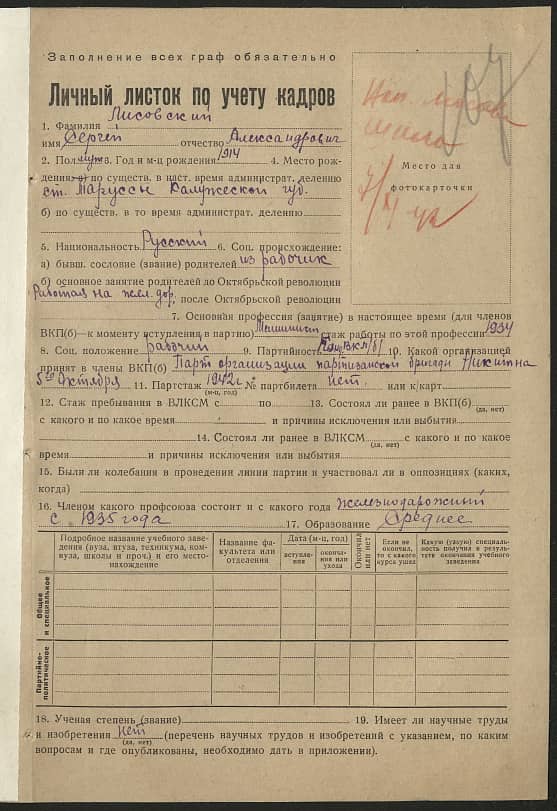 Заполнение всех граф обязательно
Личный листок по учету кадров
1. Фамилия Лисовский
имя Сергей отчество Александрович
2. Пол муж 3. Год и м-ц рождения 1914 4. Место рож-
дения а) по существ. в наст. время административ. делению
ст. Маруссы Калужеской губ.
б) по существ. в то время администрат. делению
5. Национальность Русский 6. Соц. происхождение:
а) бывш. сословие (звание) родителей из рабочик
б) основное занятие родителей до Октябрьской революции
Работал на жел. дор. после Октябрьской революции
7. Основная профессия (занятие) в настоящее время (для членов
ВКП(б)—к моменту вступления в партию) Машинист стаж работы по этой профессии 1934
8. Соц. положение рабочий 9. Партийность Канд ВКП(б) 10. Какой организацией
принят в члены ВКП(б) Парт организации партизанской бригады Никитина
5го Октября 11. Партстаж 1942г. № партбилета нет. или к/карт
(м-ц, год)
12. Стаж пребывания в ВЛКСМ с по 13. Состоял ли ранее в ВКП(б)
(да, нет)
с какого и по какое время и причины исключения или выбытия
14. Состоял ли ранее в ВЛКСМ с какого и по какое
(да, нет)
время и причины исключения или выбытия
15. Были ли колебания в проведении линии партии и участвовал ли в оппозициях (каких,
когда)
16. Членом какого профсоюза состоит и с какого года железнодарожный
с 1935 года 17. Образование Среднее
Подробное название учебного заве-
дения (вуза, втуза, техникума, ком-
вуза, школы и проч.) и его место-
нахождение
Название фа-
культета или
отделения
Дата (м-ц, год)
вступле-
ния
оконча-
ния или
ухода
Окончил
или нет
Если не
окончил,
то с какого
курса ушел
Какую (узкую) специаль-
ность получил в резуль-
тате окончания учебного
заведения
Общее
и специальное
Партийно-
политическое
18. Ученая степень (звание) 19. Имеет ли научные труды
и изобретения нет (перечень научных трудов и изобретений с указанием, по каким
(да, нет)
вопросам и где опубликованы, необходимо дать в приложении).
Место для
фотокарточки